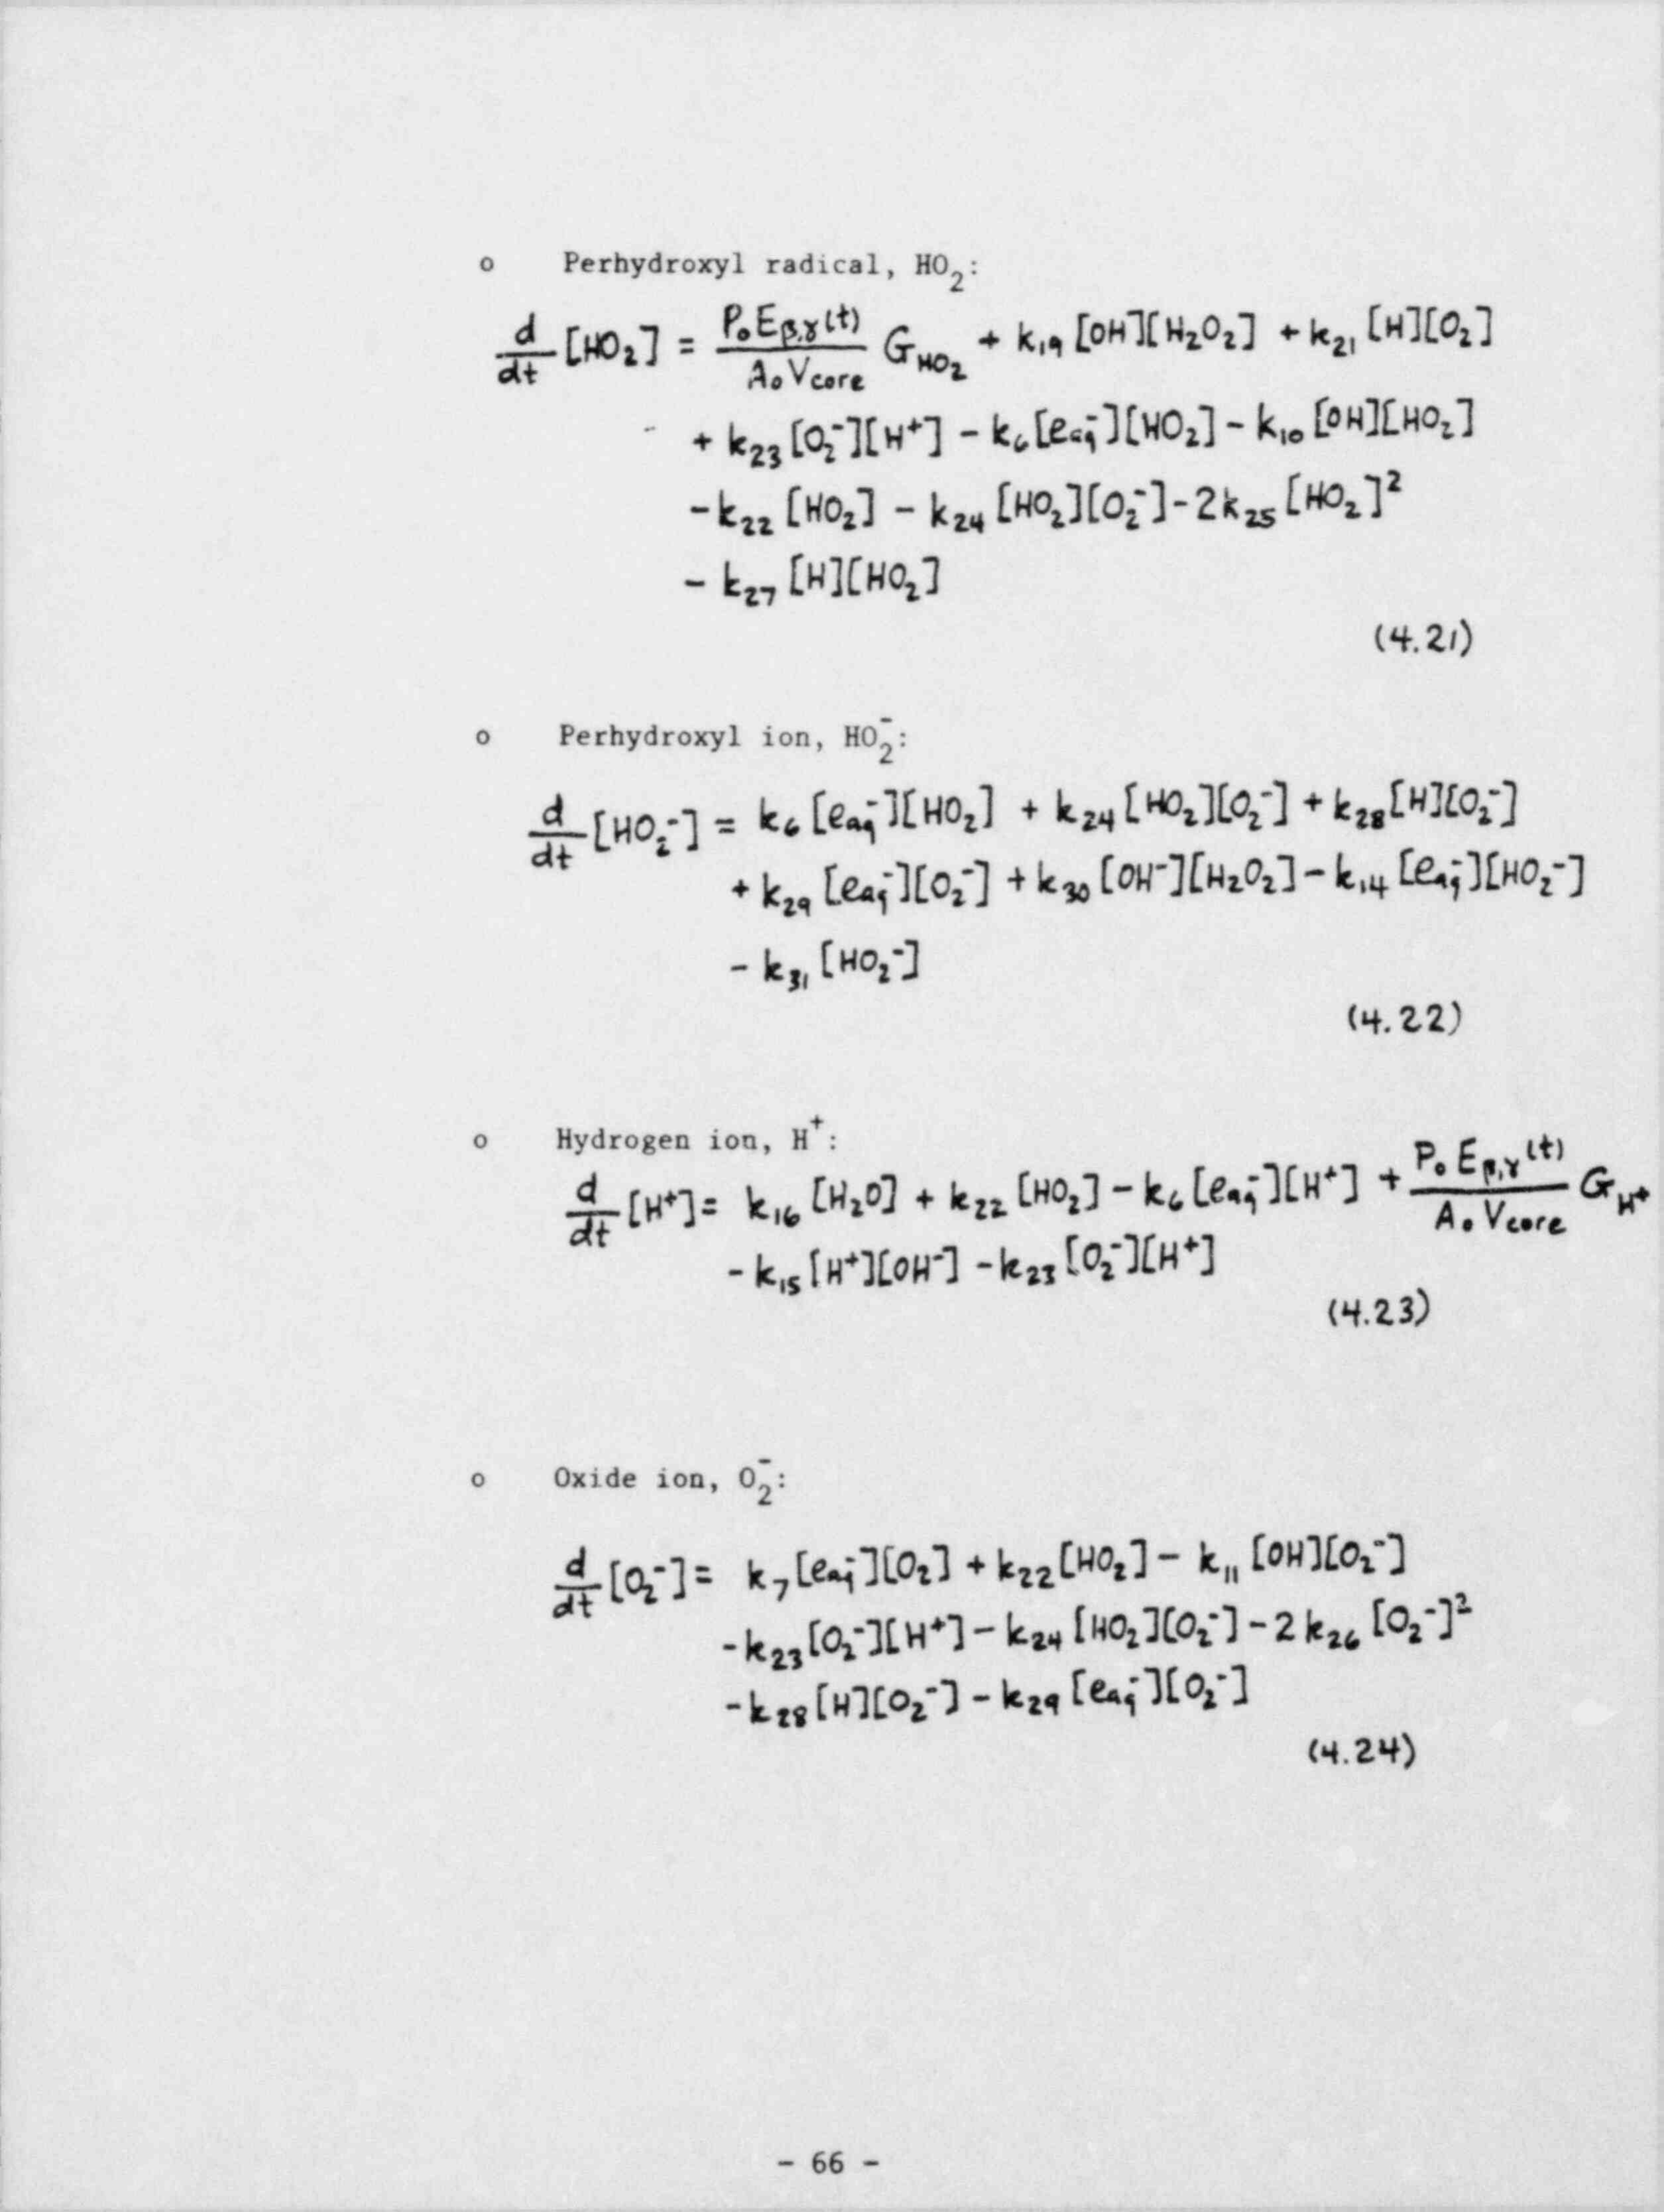 o Perhydroxyl radical, HO₂:
d/dt [HO₂] = P₀E_β,γ(t)/A₀V_core G_HO₂ + k₁₉ [OH][H₂O₂] + k₂₁ [H][O₂]
+ k₂₃ [O₂⁻][H⁺] - k₆ [e_aq⁻][HO₂] - k₁₀ [OH][HO₂]
- k₂₂ [HO₂] - k₂₄ [HO₂][O₂⁻] - 2k₂₅ [HO₂]²
- k₂₇ [H][HO₂]
(4.21)
o Perhydroxyl ion, HO₂⁻:
d/dt [HO₂⁻] = k₆ [e_aq⁻][HO₂] + k₂₄ [HO₂][O₂⁻] + k₂₈ [H][O₂⁻]
+ k₂₉ [e_aq⁻][O₂⁻] + k₃₀ [OH⁻][H₂O₂] - k₁₄ [e_aq⁻][HO₂⁻]
- k₃₁ [HO₂⁻]
(4.22)
o Hydrogen ion, H⁺:
d/dt [H⁺] = k₁₆ [H₂O] + k₂₂ [HO₂] - k₆ [e_aq⁻][H⁺] + P₀E_β,γ(t)/A₀V_core G_H⁺
- k₁₅ [H⁺][OH⁻] - k₂₃ [O₂⁻][H⁺]
(4.23)
o Oxide ion, O₂⁻:
d/dt [O₂⁻] = k₇ [e_aq⁻][O₂] + k₂₂ [HO₂] - k₁₁ [OH][O₂⁻]
- k₂₃ [O₂⁻][H⁺] - k₂₄ [HO₂][O₂⁻] - 2k₂₆ [O₂⁻]²
- k₂₈ [H][O₂⁻] - k₂₉ [e_aq⁻][O₂⁻]
(4.24)
- 66 -